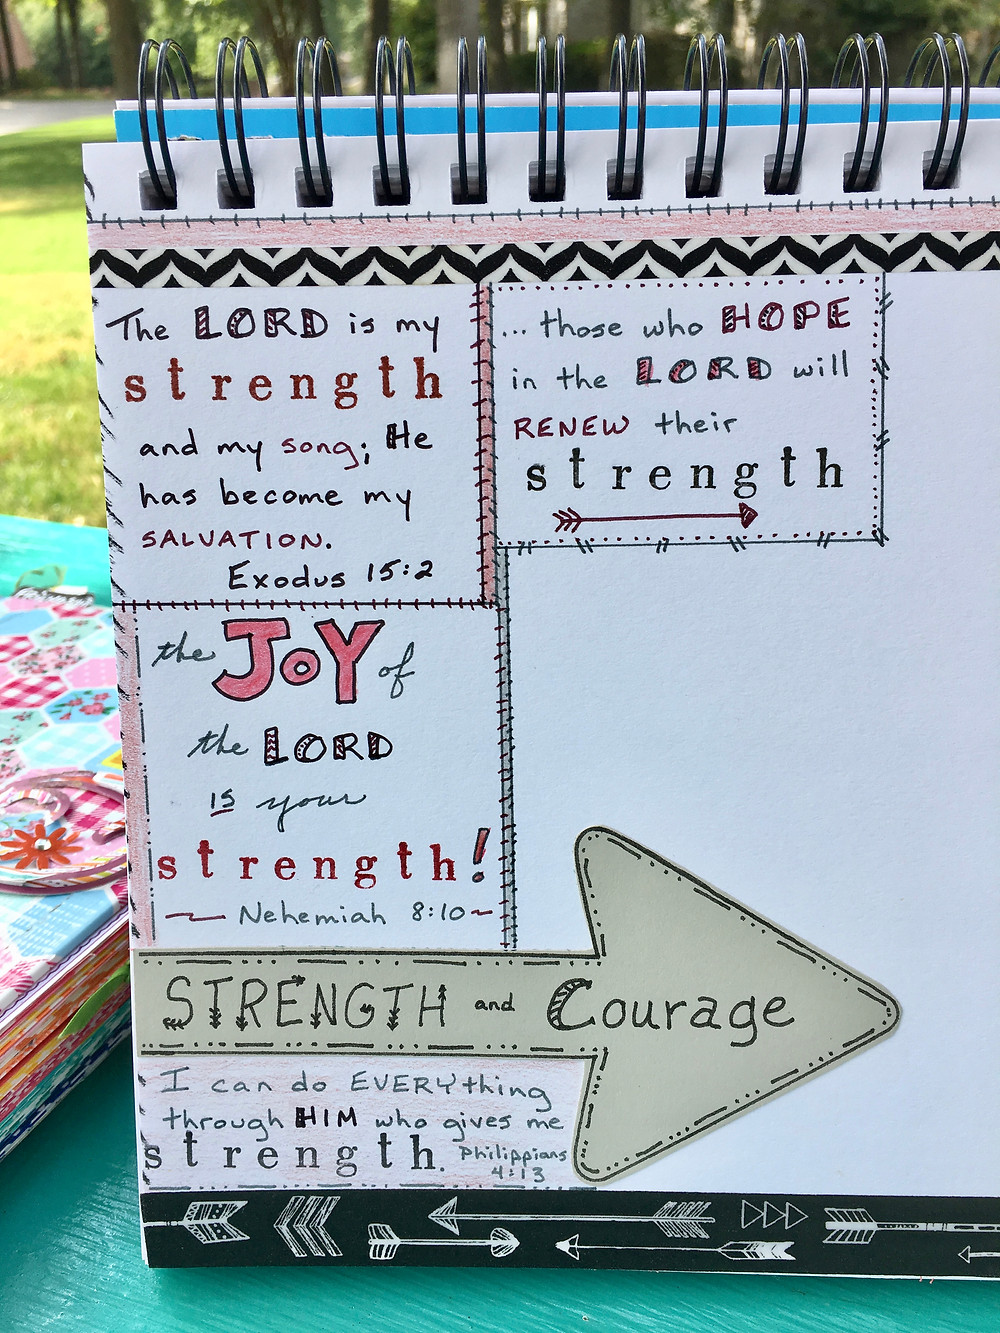 The LORD is my
strength
and my song; He
has become my
SALVATION.
Exodus 15:2
... those who HOPE
in the LORD will
RENEW their
strength
the JOY of
the LORD
is your
strength!
~ Nehemiah 8:10 ~
STRENGTH and Courage
I can do EVERYthing
through HIM who gives me
strength. Philippians
4:13